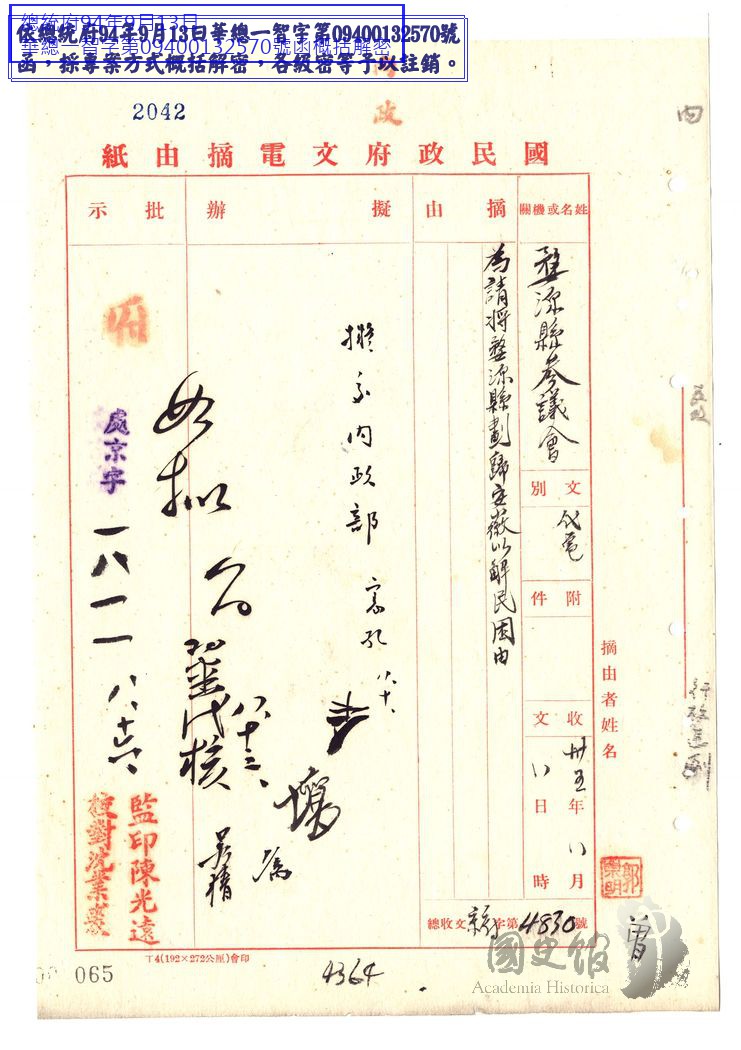 總統府94年9月13日
華總一智字第09400132570號函概括解密
依總統府94年9月13日華總一智字第09400132570號
函，採專案方式概括解密，各級密等予以註銷。
2042
內政
內
國民政府文電摘由紙
姓名或機關
婺源縣參議會
文別
代電
附件
收文
卅五年八月八日時
總收文字第4830號
摘由
為請將婺源縣劃歸安徽以解民困由
擬辦
擬交內政部
八、十、
批示
如擬
代核
八、十三、
府
處京字
一八一一
監印陳光遠
校對沈業
摘由者姓名
曾
T4(192×272公厘)會印
065
4364
國史館
Academia Historica